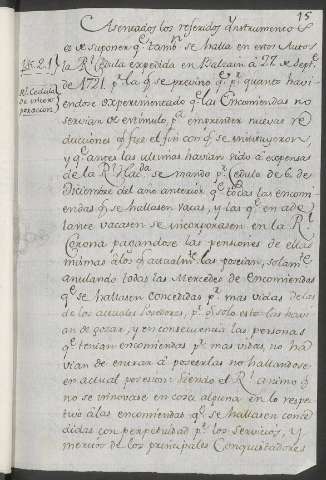 15
Asentados los referidos ynstrumentos
es de suponer q̃ tamn. se halla en estos Autos
la Rl. Cedula expedida en Balsain à 27 de Sepre.
de 1721. pr. la q̃ se previno q̃ pr. quanto havi-
endose experimentado q̃ las Encomiendas no
servian de estimulo pa. emprender nuevas re-
ducciones q̃ fue el fin con q̃ se instituyeron
y q̃ antes las ultimas havian sido à expensas
de la Rl. Hacda. se mandó pr. Cedula de 6. de
Diciembre del año anterior q̃ todas las encomi-
endas q̃ se hallasen vacas, y las q̃ en ade-
lante vacasen se incorporasen en la Rl.
Corona pagandose las pensiones de ellas
mismas à los q̃ actualmte. las poseian, solamte.
anulando todas las Mercedes de Encomiendas
q̃ se hallasen concedidas pr. mas vidas de las
de los actuales Posehedores, pr. q̃ solo estos las havi-
an de gozar, y en consecuencia las personas
q̃ tenian encomiendas pr. mas vidas, no ha-
vian de entrar à poseerlas no hallandose
en actual posesion: siendo el Rl. animo q̃
no se innovase en cosa alguna en lo respec-
tivo à las encomiendas q̃ se hallasen conce-
didas con perpetuidad pr. los servicios, y
meritos de los principales Conquistadores
Rl. Cedula
de incor-
poracion